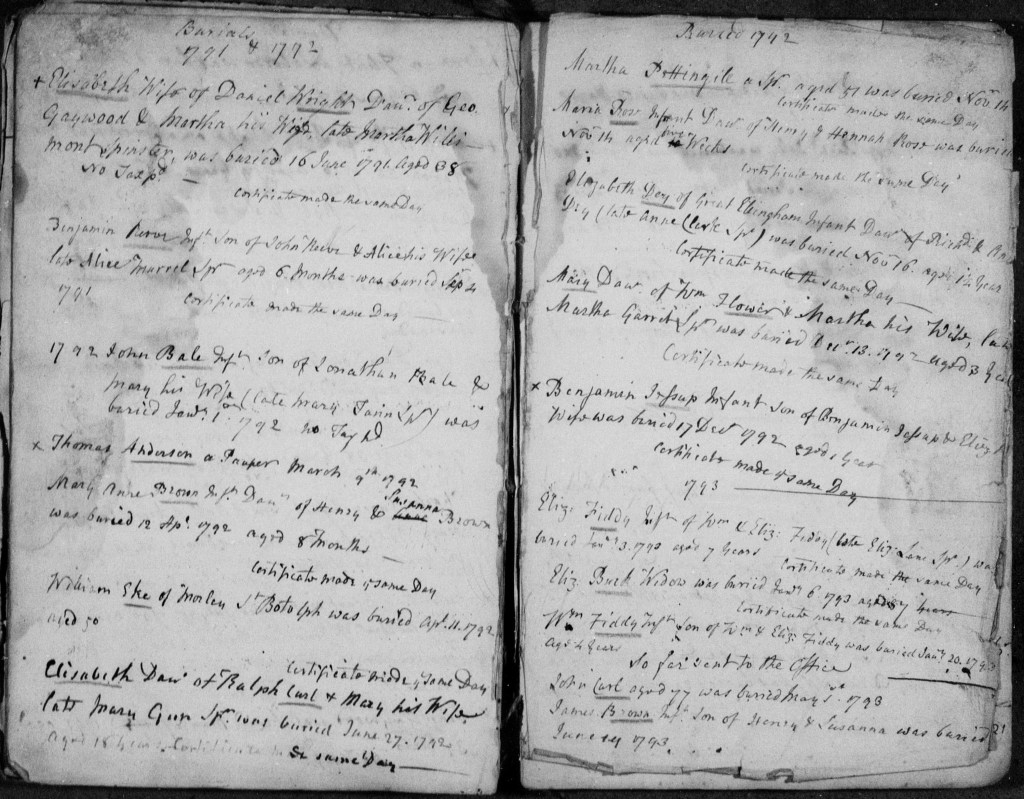 Burials
1791 & 1792
+ Elisabeth Wife of Daniel Wright Dawr. of Geo.
Gaywood & Martha his Wife, late Martha Willi-
mont Spinster, was buried 16 June 1791 aged 38
No Tax pd. —
Certificate made the same Day
Benjamin Reeve Inft. Son of John Reeve & Alice his Wife
late Alice Murrel Spr. aged 6 Months was buried Sep 4
1791
Certificate made the same Day —
1792 John Bale Inft. Son of Jonathan Bale &
Mary his Wife (late Mary Spr.) was
buried Jany. 1st. 1792 no Tax pd.
x Thomas Anderson a Pauper March 9th 1792
Mary Anne Brown Inft. Dawr. of Henry & Susanna Brown
was buried 12 Apl. 1792 aged 8 Months —
Certificate made ye same Day
William Eke of Morley St. Botolph was buried Apl. 11. 1792
aged 50
Certificate made ye same Day
Elisabeth Dawr. of Ralph Carl & Mary his Wife
late Mary Gun Spr. was buried June 27. 1792
aged 18 years. Certificate
same Day —
Buried 1792
Martha Pottingile a Spr. aged 51 was buried Novr. 11th
Certificate made the same Day
Maria Rose Infant Dawr. of Henry & Hannah Rose was buried
Nov 11th aged Weeks
Certificate made the same Day
Elizabeth Dey of Great Ellingham Infant Dawr. of Richd. & Ann
Dey (late Anne Clark Spr.) was buried Nov 16. aged 1¼ Year
Certificate made the same Day —
Mary Dawr. of Wm Flower & Martha his Wife, late
Martha Garret Spr. was buried Decr. 13. 1792 aged 3 Years
Certificate made the same Day
x Benjamin Jessup Infant Son of Benjamin Jessup & Eliz.
Wife was buried 17 Decr 1792 aged 1 Year
Certificate made ye same Day
1793
Eliz: Fiddy Inft. of Wm & Eliz: Fiddy (late Eliz: Lane Spr.) was
buried Jany. 3. 1793 aged 7 Years
Certificate made the same Day
Eliz. Buck Widow was buried Jany. 6 1793 aged
Certificate made the same Day
Wm Fiddy Inft. Son of Wm & Eliz: Fiddy was buried Jany. 20. 1793
aged 4 Years
So far sent to the Office
John Carl aged 77 was buried May 1st 1793
James Brown Inft Son of Henry & Susanna was buried
June 14 1793